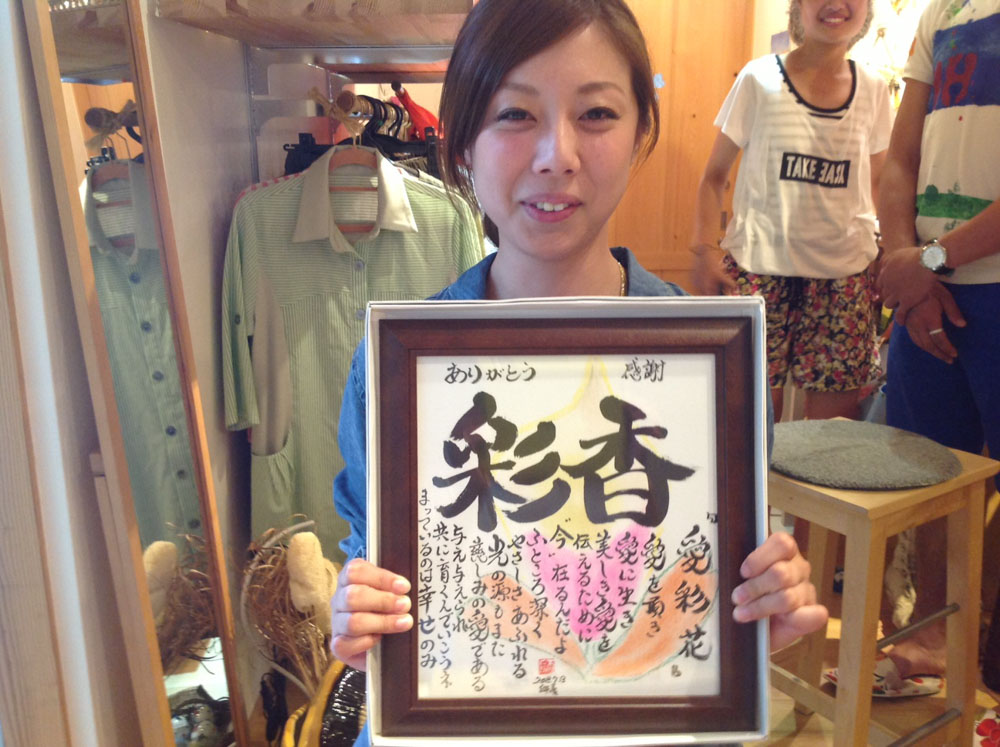 ありがとう
感謝
彩香
"愛彩花
愛を蒔き
愛に生き
美しき愛を
伝えるために
今"在るんだよ
ふところ深く
やさしさあふれる
光の源もまた
慈しみの愛である
与え与えられ
共に育くんでいこうネ
まっているのは幸せのみ
TAKE